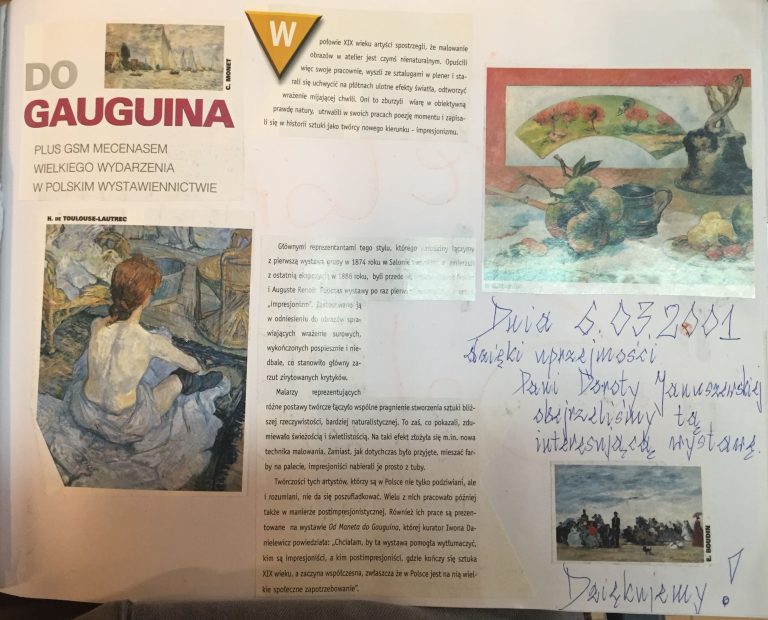 C. MONET
DO
GAUGUINA
PLUS GSM MECENASEM
WIELKIEGO WYDARZENIA
W POLSKIM WYSTAWIENNICTWIE
H. DE TOULOUSE-LAUTREC
W
połowie XIX wieku artyści spostrzegli, że malowanie
obrazów w atelier jest czymś nienaturalnym. Opuścili
więc swoje pracownie, wyszli ze sztalugami w plener i sta-
rali się uchwycić na płótnach ulotne efekty światła, odtworzyć
wrażenie mijającej chwili. Oni to zburzyli wiarę w obiektywną
prawdę natury, utrwalili w swoich pracach poezję momentu i zapisa-
li się w historii sztuki jako twórcy nowego kierunku - impresjonizmu.
Głównymi reprezentantami tego stylu, którego łączymy
z pierwszą wystawą grupy w 1874 roku w Salonie
z ostatnią ekspozycją w 1886 roku, byli przede
i Auguste Renoir. Podczas wystawy po raz pierw
„impresjonizm”. Zastosowano ją
w odniesieniu do obrazów spra-
wiających wrażenie surowych,
wykończonych pospiesznie i nie-
dbale, co stanowiło główny za-
rzut zirytowanych krytyków.
Malarzy reprezentujących
różne postawy twórcze łączyło wspólne pragnienie stworzenia sztuki bliż-
szej rzeczywistości, bardziej naturalistycznej. To zaś, co pokazali, zdu-
miewało świeżością i świetlistością. Na taki efekt złożyła się m.in. nowa
technika malowania. Zamiast, jak dotychczas było przyjęte, mieszać far-
by na palecie, impresjoniści nabierali je prosto z tuby.
Twórczości tych artystów, którzy są w Polsce nie tylko podziwiani, ale
i rozumiani, nie da się poszufladkować. Wielu z nich pracowało później
także w manierze postimpresjonistycznej. Również ich prace są prezen-
towane na wystawie Od Maneta do Gauguina, której kurator Iwona Da-
nielewicz powiedziała: „Chciałam, by ta wystawa pomogła wytłumaczyć,
kim są impresjoniści, a kim postimpresjoniści, gdzie kończy się sztuka
XIX wieku, a zaczyna współczesna, zwłaszcza że w Polsce jest na nią wiel-
kie społeczne zapotrzebowanie”.
Dnia 6.03.2001
dzięki uprzejmości
Pani Doroty Januszewskiej
obejrzeliśmy tą
interesującą wystawę.
E. BOUDIN
Dziękujemy!